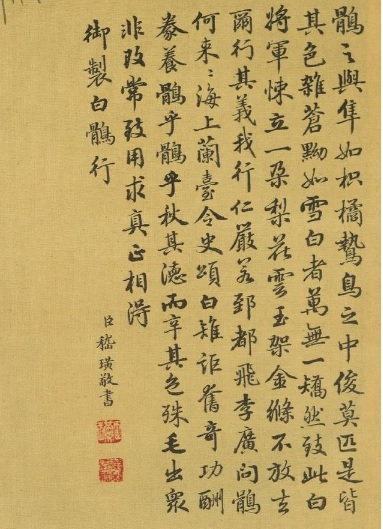 鶻之與隼如枳橘鷙鳥之中俊莫匹是皆
其色雜蒼黝如雪白者萬無一矯然致此白
將軍悚立一朵梨花雲玉架金絛不放去
爾行其義我行仁嚴若郅都飛李廣問鶻
何來〻海上蘭臺令史頌白雉詎舊奇功酬
豢養鶻乎鶻乎秋其德而辛其色殊毛出衆
非攷常致用求真正相得
御製白鶻行
臣嵇璜敬書